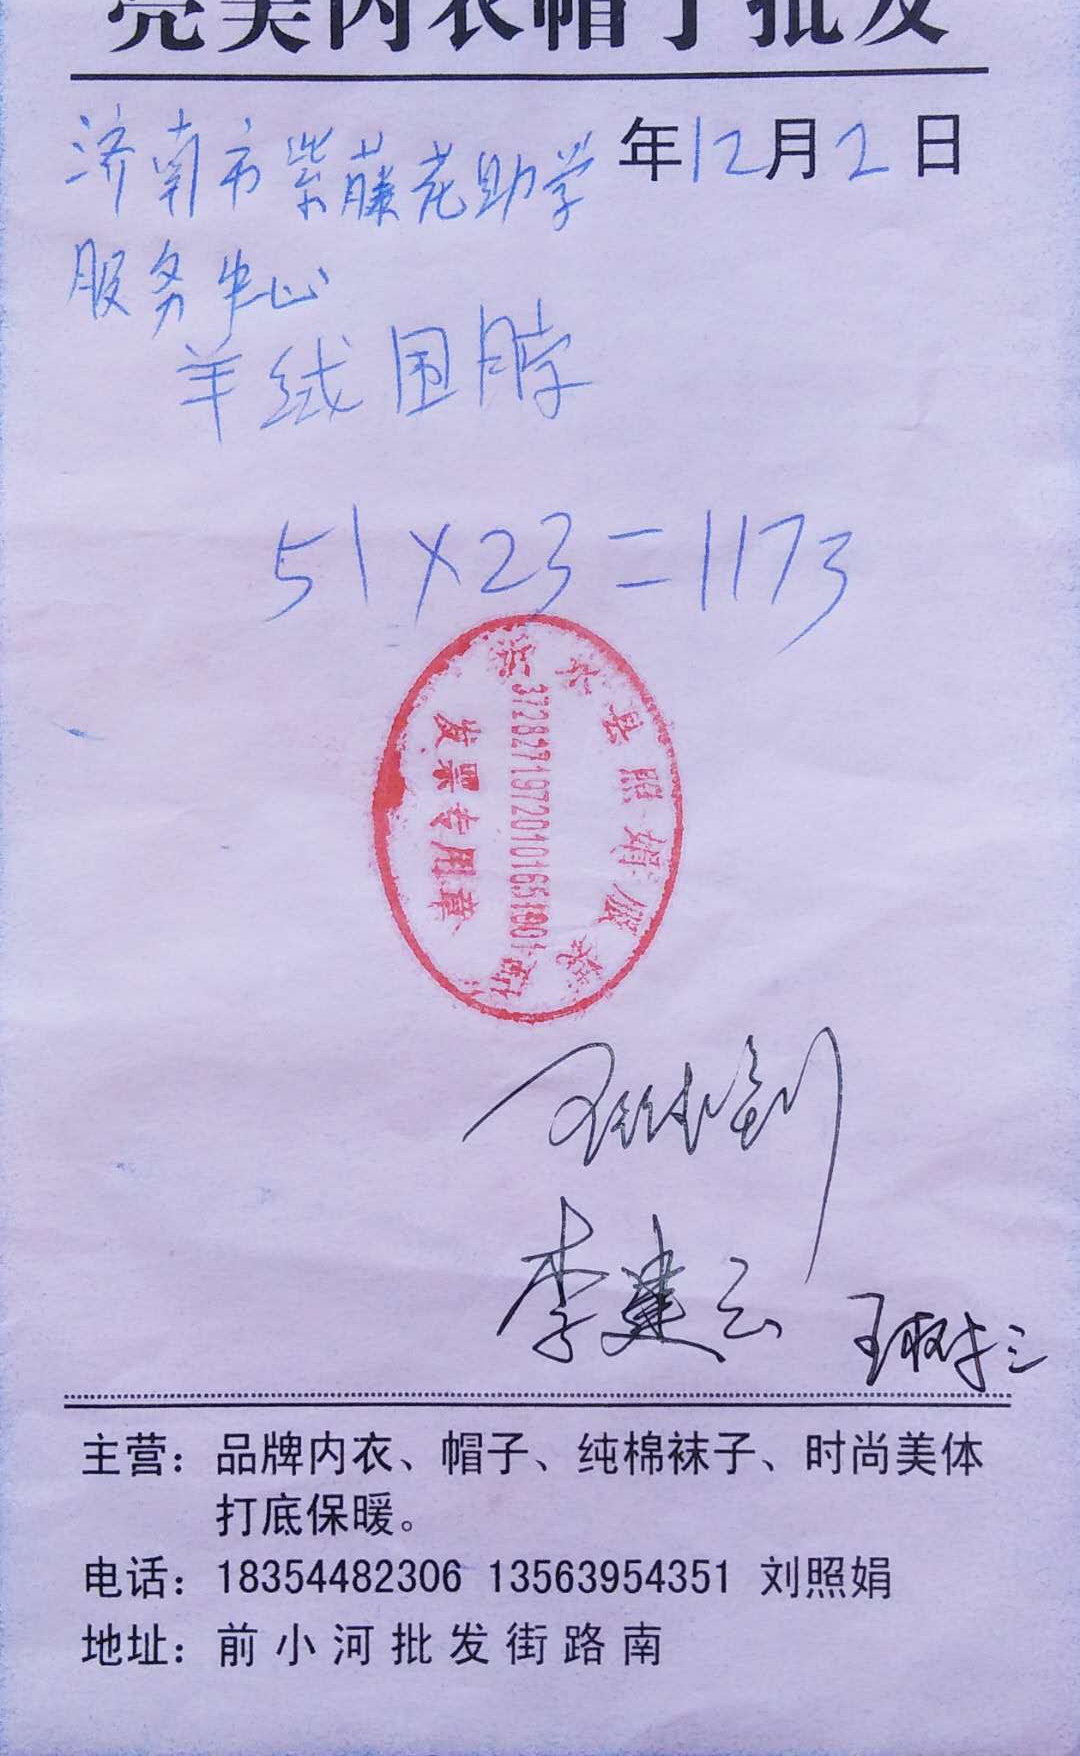 亮美内衣帽子批发
年12月2日
济南市紫藤花助学
服务中心
羊绒围脖
51×23=1173
县照娟服装
发票专用章
李建云
王树三
主营：品牌内衣、帽子、纯棉袜子、时尚美体
打底保暖。
电话：18354482306 13563954351 刘照娟
地址：前小河批发街路南